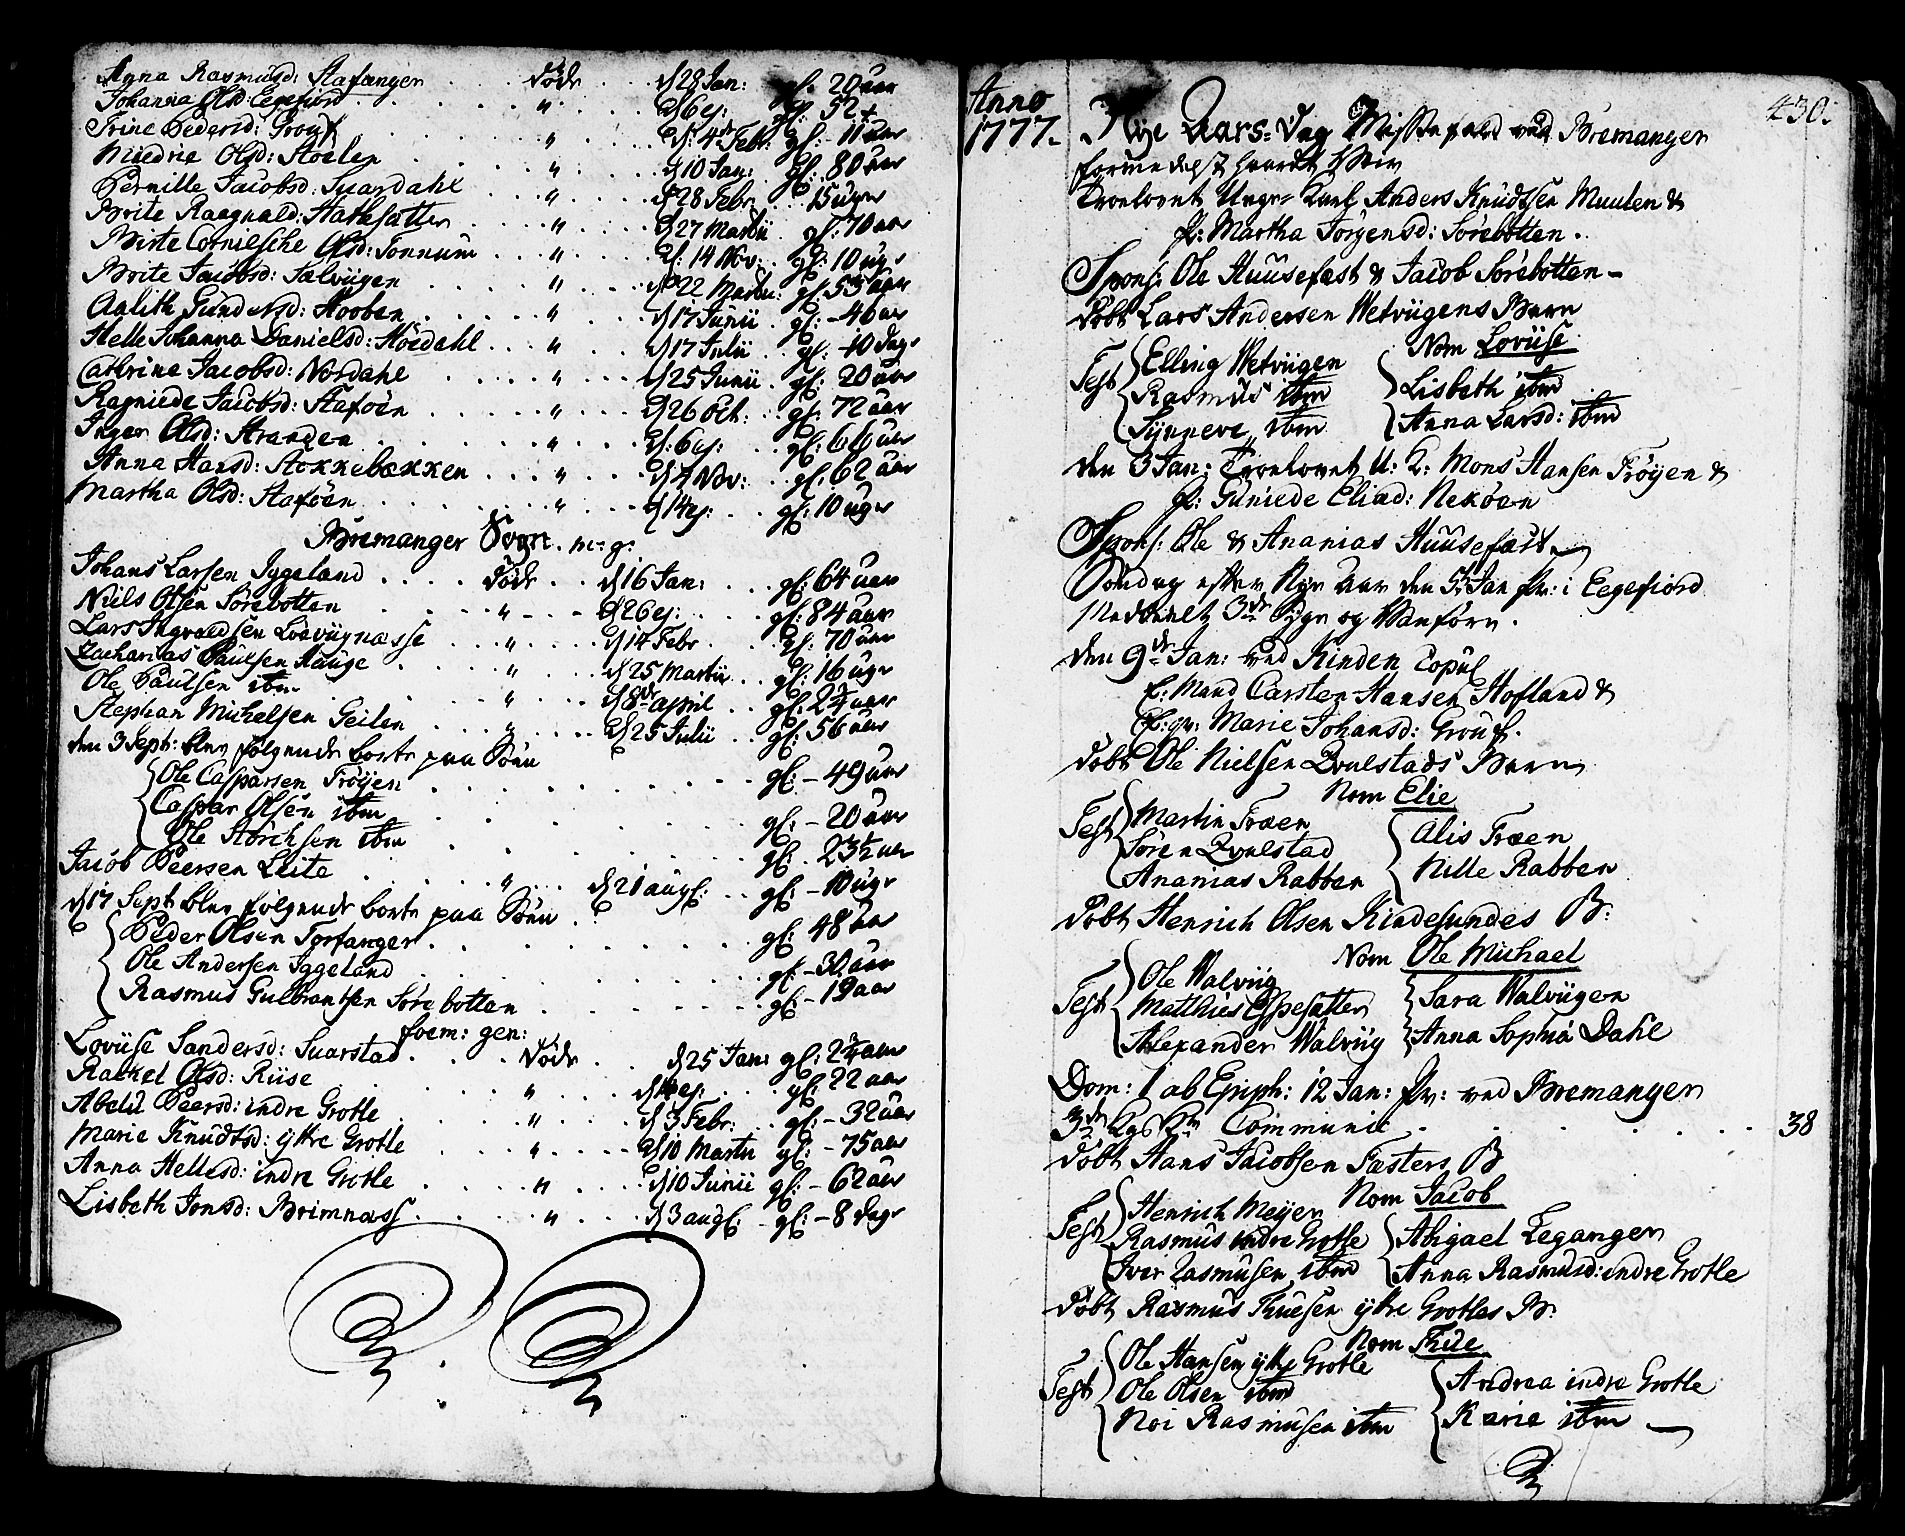 Anna Rasmusd: Stafanger . . . døde . . . d 28 Jan: gl. 20 aar
Johanna Olsd: Eegefiord . . . " . . . d 6 ej: gl. 52 +
Trine Pedersd: Grouf . . . " . . . d: 4de Febr: gl: 11 aar
Olsd: Stöelen . . . " . . . d 10 Jan: gl: 80 aar
Pernille Jacobsd: Suardahl . . . " . . . d 28 Febr . . 15 uger
Brite Raagnald: Hathesætter . . . " . . . d 27 Martii gl: 70 aar
Birte Cornelsche Olsd: Tonnum . . . " . . . d: 14 Nov: gl: 10 ugr
Brite Jacobsd: Sælviigen . . . " . . . d 22 Martii: gl 55 aar
Aalith Gundersd: Hooben . . . " . . . d 17 Junii gl: - 46 aar
Helle Johanna Danielsd: Höedahl . . . " . . . d 17 Julii . gl: - 10 dage
Cathrine Jacobsd: Nordahl . . . " . . . d 25 Junii . gl: 20 aar
Ragniede Jacobsd: Staföen . . . " . . . d 26 Oct: . gl: 72 aar
Inger Olsd: Stranden . . . " . . . d: 6 ej: . . gl: 66 aar
Anna Hansd: Stokkebækken . . . " . . . d 4 Nov: . . gl. 62 aar
Martha Olsd: Staföen . . . " . . . d 14 ej: . . gl: 10 ugr
Bremanger Sogn. m: g:
Johans Larsen Iggeland . . . . døde . . d 16 Jan: . . . gl: 64 aar
Niels Olsen Sörebotten . . . " . . . d 26 ej: . . . gl: 84 aar
Lars Ingvaldsen Löeviignæsse . . . " . . . d 14 Febr . . gl: 70 aar
Zacharias Paulsen Hauge . . . " . . . d 25 Martii . . gl: 16 ugr
Ole Paulsen ibm . . . " . . . d 8de april . . gl: 2 1/2 aar
Stephan Michelsen Geilen . . . " . . . d 25 Julii . . gl: 56 aar
den 3 Sept: blev følgende borte paa Söen
Ole Casparsen Fröyen . . . gl: - 49 aar
Caspar Olsen ibm . . . gl: - 20 aar
Ole Störchsen ibm . . . gl: 23 1/2 aar
Jacob Peersen Leite . . . " . . . d 21 augs: . . gl: - 10 ugr
d 17 Sept blev følgende borte paa Söen
Peder Olsen Torfanger . . . gl: 48 aar
Ole Andersen Iggeland . . . gl: - 30 aar
Rasmus Gulbrantsen Sörebotten . . . gl: - 19 aar
foem: gen:
Loviise Sandersd: Suarstad . . . døde . . d 25 Jan: gl: 2 1/2 aar
Rachel Olsd: Riise . . . " . . . d 16 ej: . . gl: 22 aar
Abelü Peersd: indre Grotle . . . " . . . d 3 Febr: . . gl: - 32 aar
Marie Knudtsd: ÿttre Grotle . . . " . . . d 10 Martii gl: - 75 aar
Anna Hellesd: indre Grotle . . . " . . . d 10 Junii gl: - 62 aar
Lisbeth Jonsd: Brimnæss . . . " . . . d 3 augs: . gl: - 8 dage
430.
Anno
1777. Nye Aars-Dag Messefald ved Bremanger
formedelst haardt Veir
Troelovet Ungr Karl Anders Knudtsen Muulen &
P: Martha Jörgensd: Sörebotten .
Spons: Ole Huusefest & Jacob Sörebotten -
Döbt Lars Andersen Wetviigens Barn
Nom Loviise
Test Elling Wetviigen
Rasmus ibm Lisbeth ibm
Synneve ibm Anna Larsd: ibm
den 3 Jan: Troelovet U: K: Mons Hansen Fröyen &
P: Guniede Eliæd: Neköen
Spons: Ole & Ananias Huusefæst
Söndag efter Nye Aar den 5te Jan Pr: i Eegefiord
Meddeelt 3de Syge og Vanföre .
den 9de Jan: ved Kinden Copul
E: Mand Carsten Hansen Hofland &
Marie Johansd: Grouf.
Döbt Ole Nielsen Qvalstads Barn
Nom Elie
Test Martin Fræen Alis Fræen
Sören Qvalstad
Ananias Rabben Nille Rabben
Döbt Henrich Olsen Kindesundes B:
Nom Ole Michael
Test Ole Walviig Sara Walviigen
Matthies Espesætter
Alexander Walviig Anna Sophia Dahl
Dom: 1 ab Epiph: 12 Jan: Pr: ved Bremanger
3de Communic . . . 38
Döbt Hans Jacobsen Fæsters B
Nom Jacob
Test Henrich Meyer
Rasmus indre Grotle Abigael Leganger
Iver Rasmusen ibm Anna Rasmusd: indre Grotle
Döbt Rasmus Thuesen ÿttre Grotles B:
Nom Thue
Test Ole Hansen ÿttre Grotle
Ole Olsen ibm Andrea indre Grotle
Noi Rasmusen ibm Karie ibm